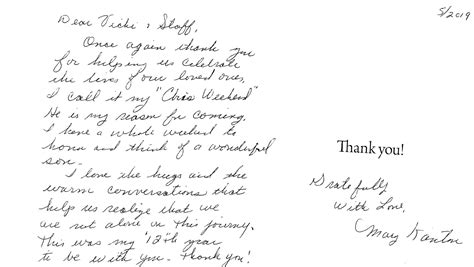 5/2019
Dear Vicki & Staff,
Once again thank you
for helping us celebrate
the lives of our loved ones.
I call it my "Chris Weekend"
He is my reason for coming.
I have a whole weekend to
honor and think of a wonderful
son.
I love the hugs and the
warm conversations that
help us realize that we
are not alone on this journey.
This was my 12th year
to be with you. Thank you!
Thank you!
Gratefully
With Love,
Mary